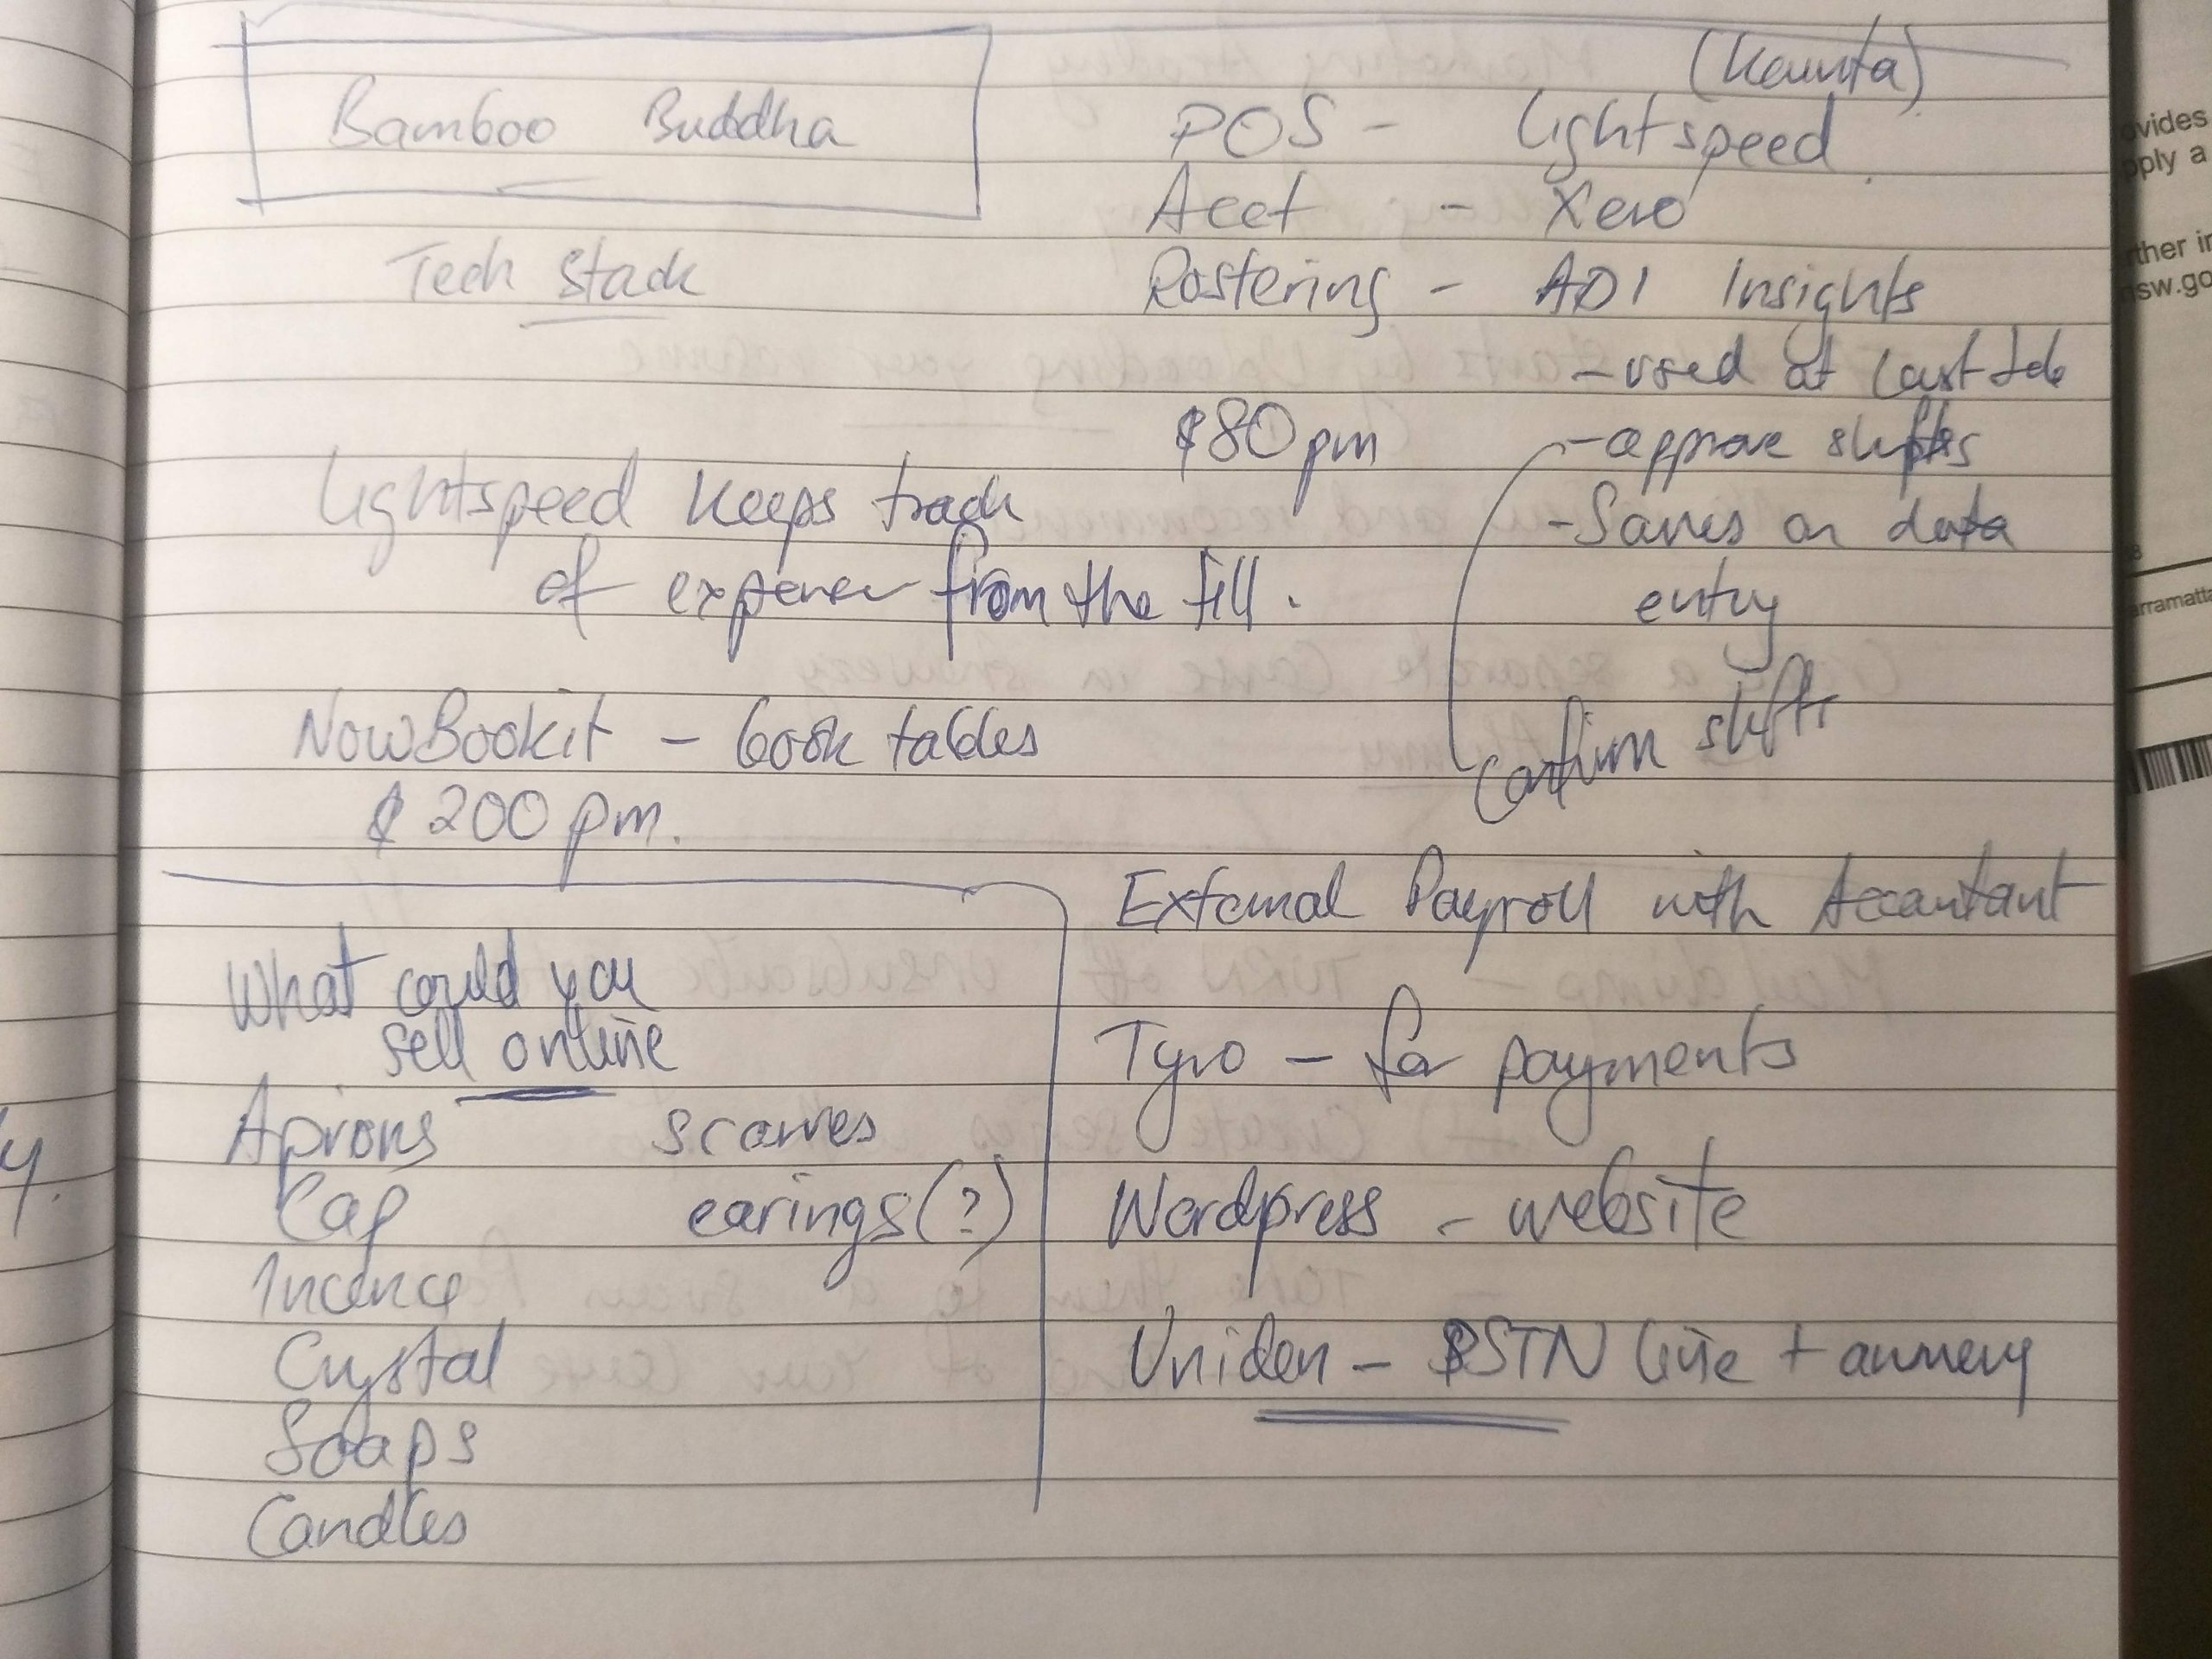 Bamboo Buddha
Tech Stack
(Kounta)
POS - Lightspeed
Acct - Xero
Rostering - ADI Insights
- used at last Job
$80 pm
- approve shifts
- Saves on data
entry
confirm shifts
Lightspeed keeps track
of expenses from the till.
NowBookit - book tables
$200 pm.
What could you
sell online
Aprons scarves
Cap earings (?)
Incence
Crystal
Soaps
Candles
External Payroll with Accountant
Tyro - for payments
Wordpress - website
Uniden - PSTN line +
ovides
pply a
ther in
nsw.go
arramatta
y.